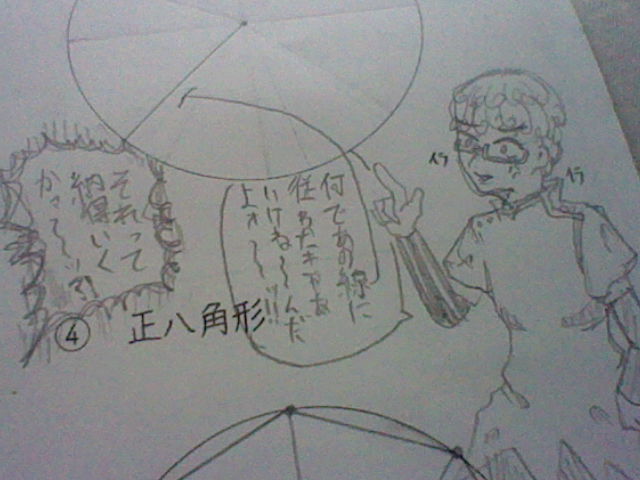 何であの線に
従わなきゃあ
いけね〜〜んだ
よォ〜〜〜ッ!!
イラ
イラ
それって
納得いく
かァ〜〜〜ッ!?
④ 正八角形